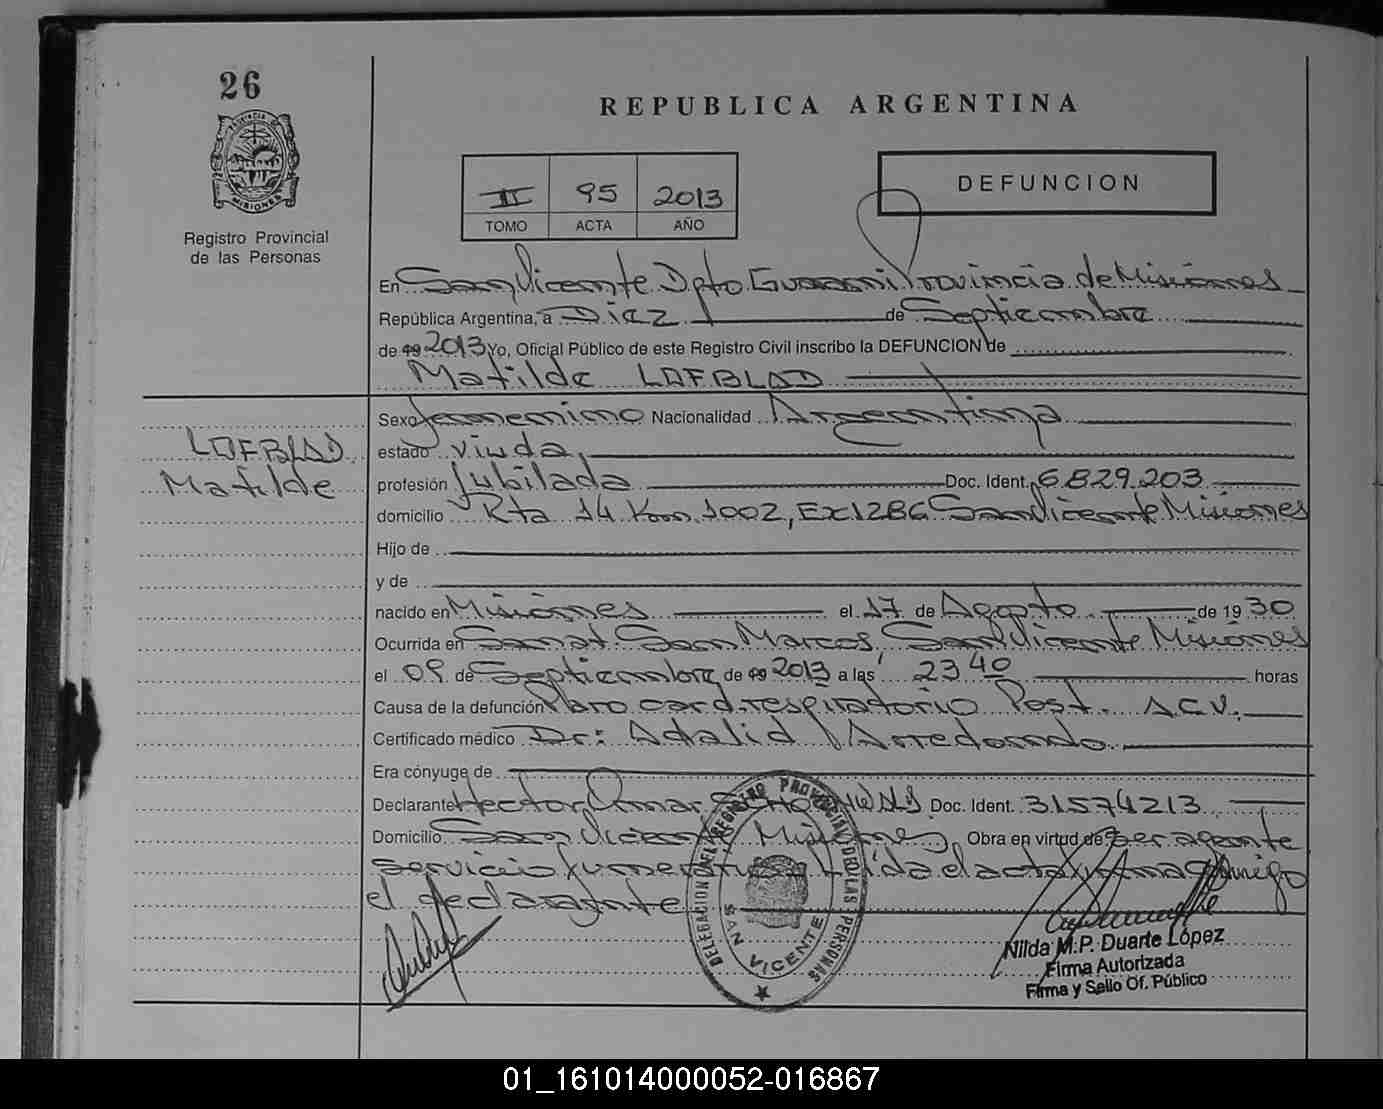 26
REPUBLICA ARGENTINA
PROVINCIA DE
MISIONES
Registro Provincial
de las Personas
II 95 2013
TOMO ACTA AÑO
DEFUNCION
En San Vicente Dpto Guarani Provincia de Misiones
República Argentina, a Diez de Septiembre
de 19 2013 Yo, Oficial Público de este Registro Civil inscribo la DEFUNCION de
Matilde LOFBLAD
Sexo femenino Nacionalidad Argentina
LOFBLAD
Matilde
estado viuda,
profesión Jubilada Doc. Ident. 6.829.203
domicilio Rta 14 Km. 1002, Ex1286 San Vicente Misiones
Hijo de
y de
nacido en Misiones el 17 de Agosto de 19 30
Ocurrida en Sanat. San Marcos, San Vicente Misiones
el 09 de Septiembre de 19 2013 a las 23 40 horas
Causa de la defunción Paro card. respiratorio Post. A.C.V.
Certificado médico Dr: Adalid Arredondo
Era cónyuge de
Declarante Hector Omar Doc. Ident. 31574213
Domicilio San Vicente Misiones, Obra en virtud de ser agente
servicio funerario Leída el acta firma conmigo
el declarante
DELEGACION DEL REGISTRO PROVINCIAL DE LAS PERSONAS
SAN VICENTE
Nilda M.P. Duarte López
Firma Autorizada
Firma y Sello Of. Público
01_161014000052-016867